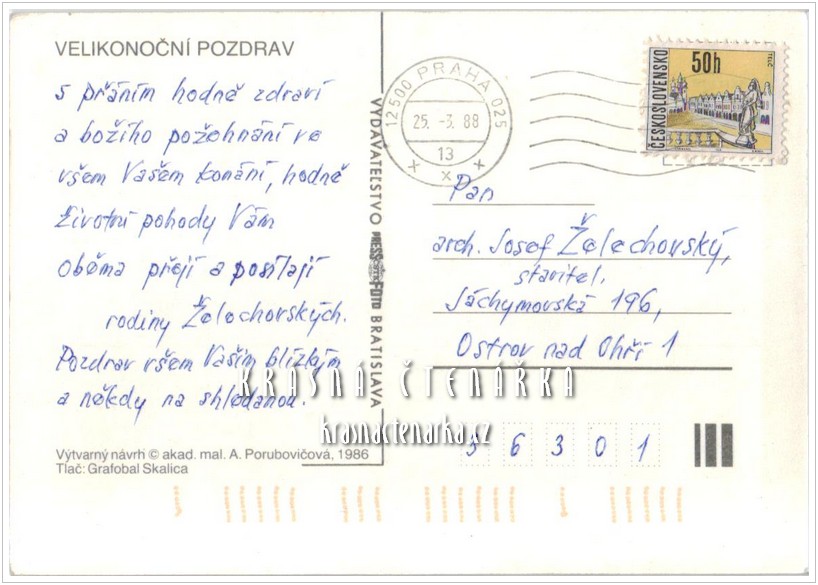 VELIKONOČNÍ POZDRAV
s přáním hodně zdraví
a božího požehnání ve
všem Vašem konání, hodně
životní pohody Vám
oběma přejí a posílají
rodiny Želechovských.
Pozdrav všem Vašim blízkým
a někdy na shledanou.
Výtvarný návrh © akad. mal. A. Porubovičová, 1986
Tlač: Grafobal Skalica
VYDAVATEĽSTVO PRESSFOTO BRATISLAVA
12500 PRAHA 025
25. -3. 88
13
x x x
ČESKOSLOVENSKO
50h
TELČ
Pan
arch. Josef Želechovský,
stavitel,
Jáchymovská 196,
Ostrov nad Ohří 1
36301
KRÁSNÁ ČTENÁŘKA
krasnactenarka.cz